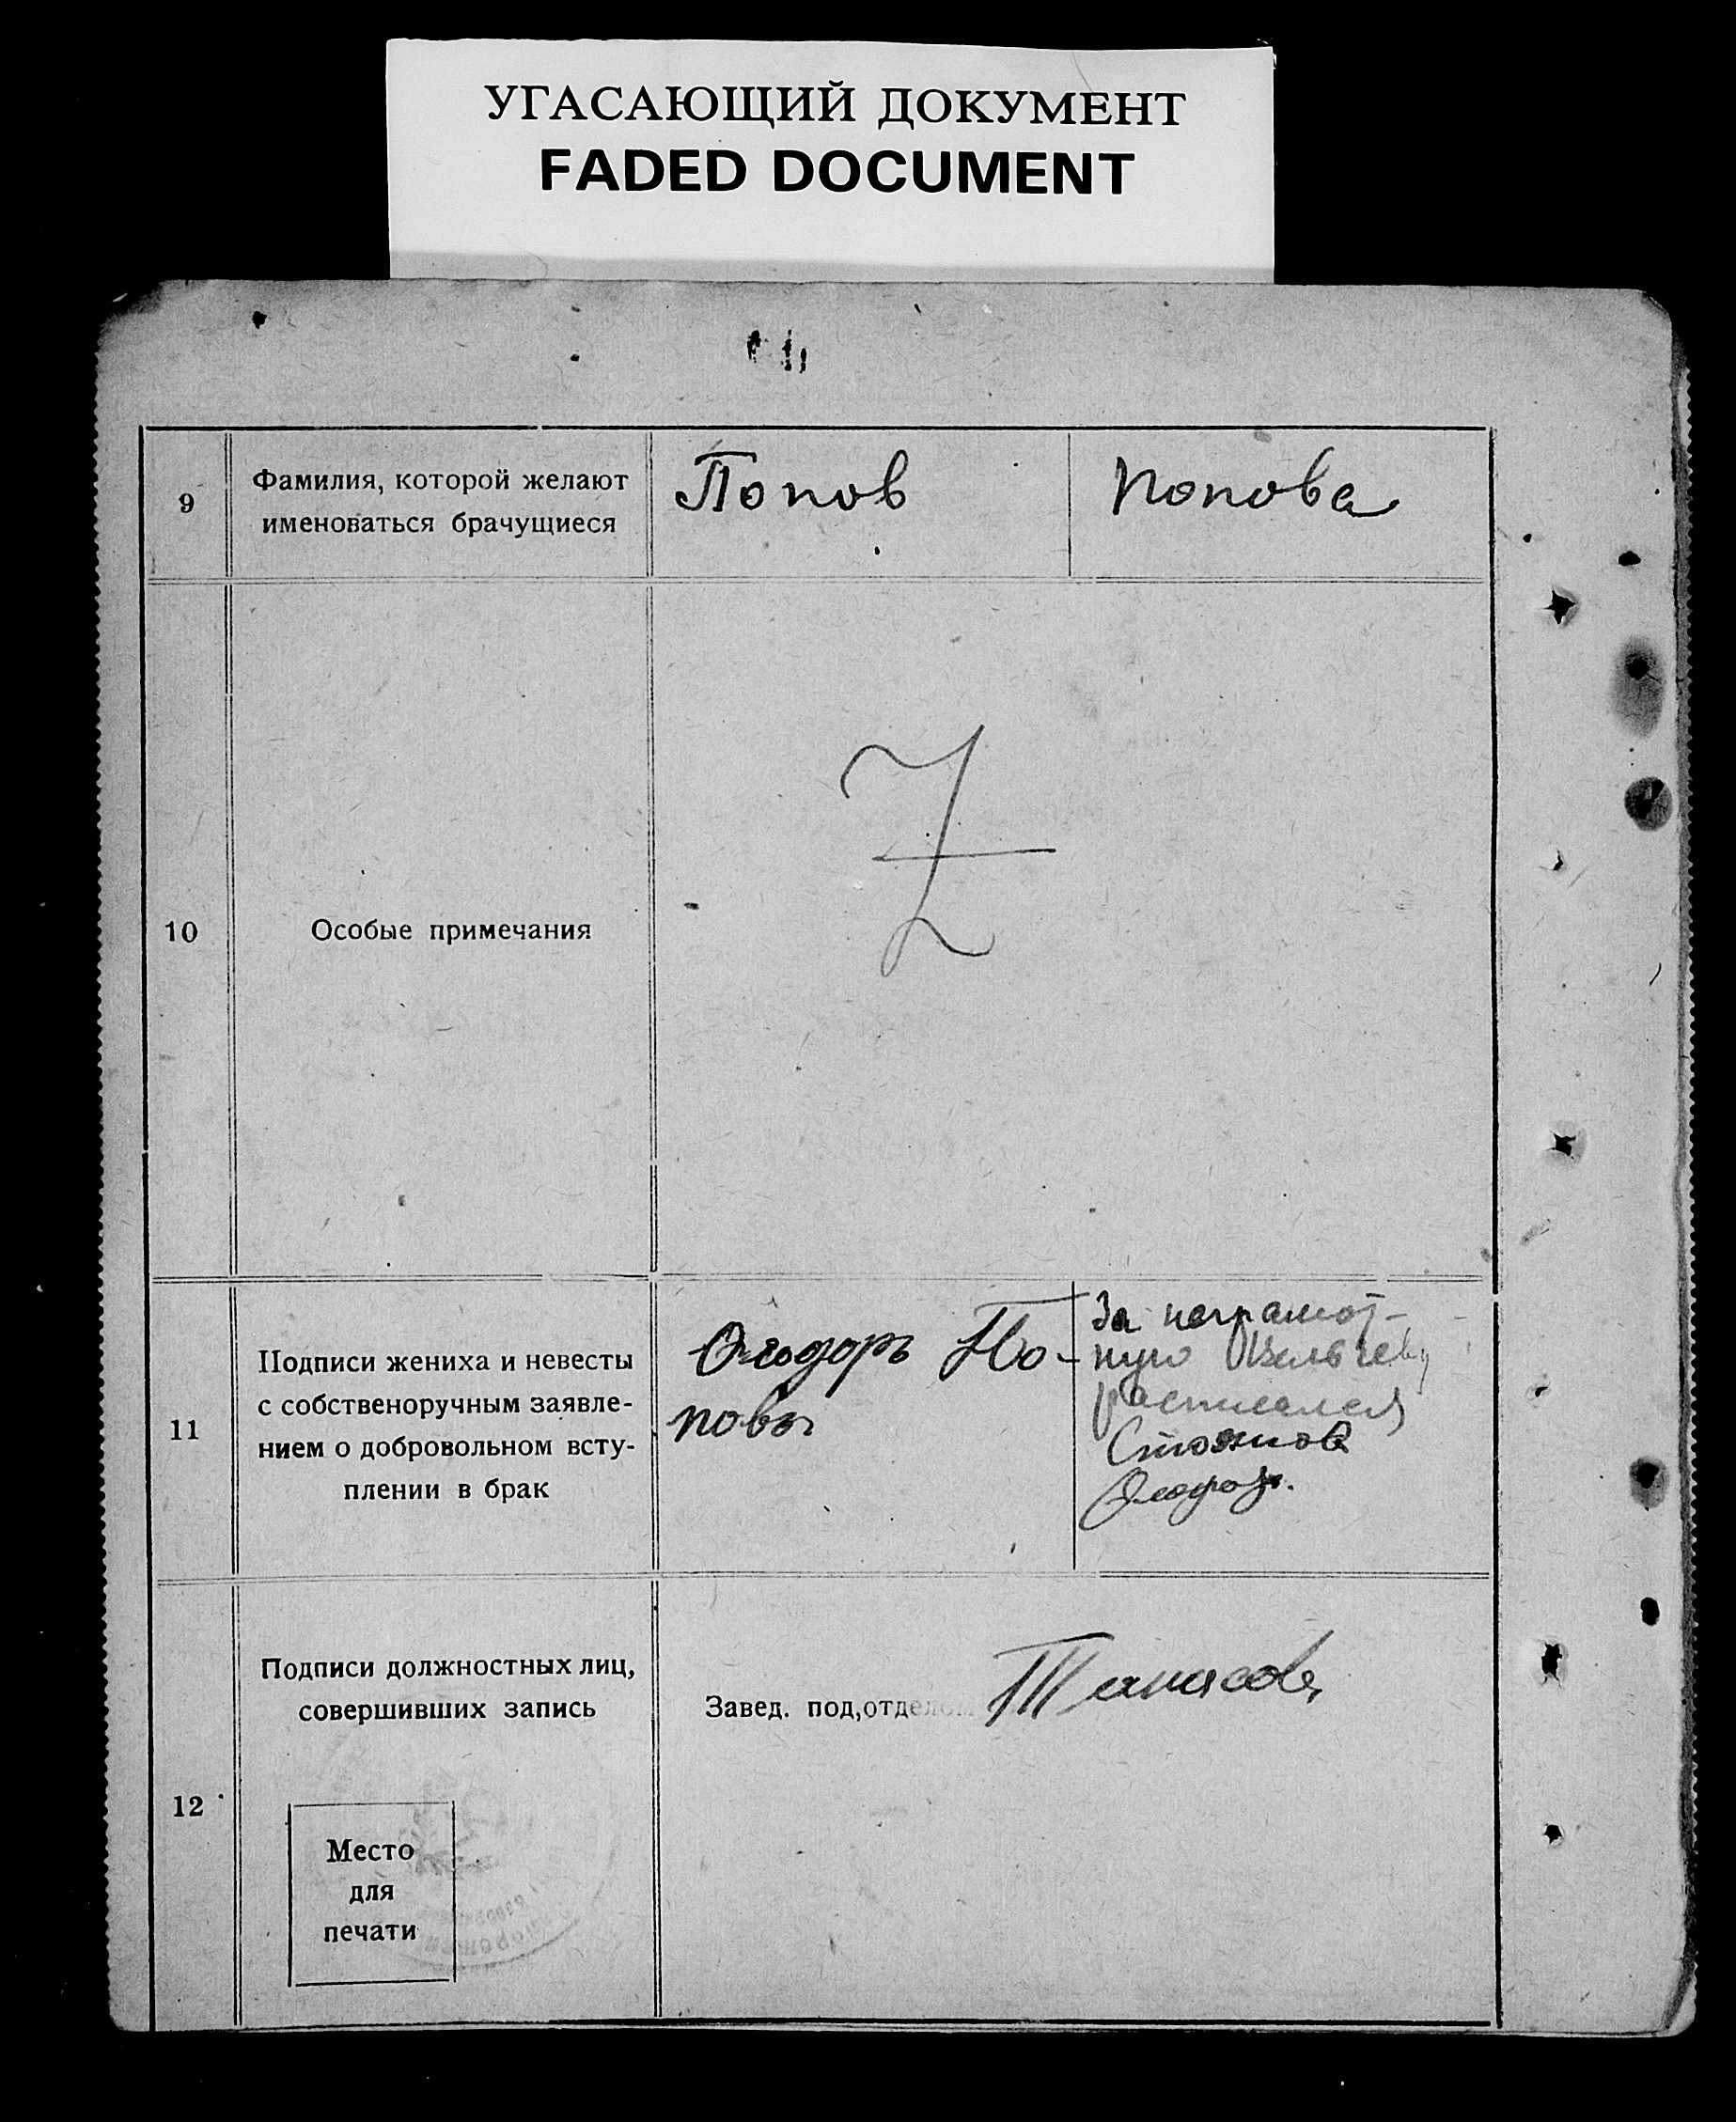 УГАСАЮЩИЙ ДОКУМЕНТ
FADED DOCUMENT
9
Фамилия, которой желают
именоваться брачущиеся
Попов
Попова
10
Особые примечания
11
Подписи жениха и невесты
с собственоручным заявле-
нием о добровольном всту-
плении в брак
Ѳеодоръ По-
повъ
За неграмот-
ную
расписался
Стоянов
12
Подписи должностных лиц,
совершивших запись
Завед. под,отделом
Танасов
Место
для
печати